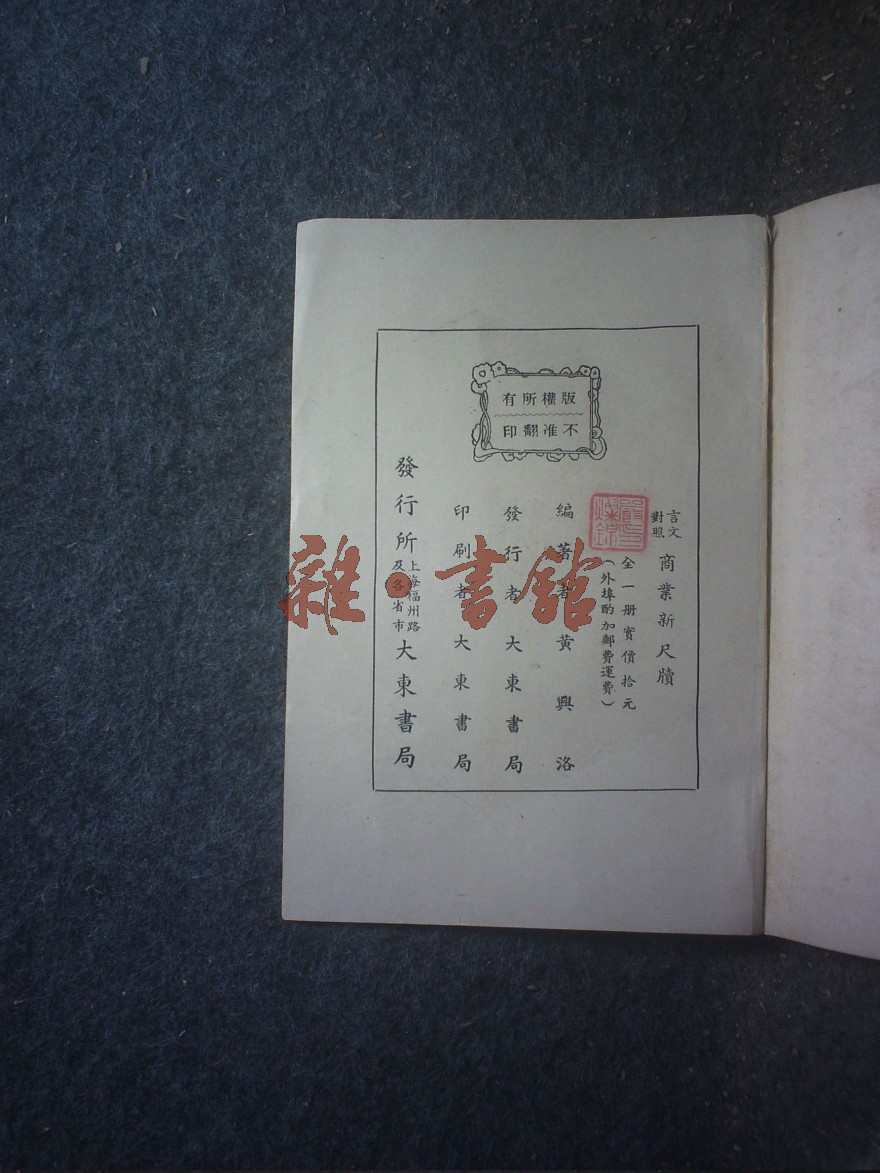 版權所有
不准翻印
言文對照
商業新尺牘
全一册實價拾元
(外埠酌加郵費運費)
編著者黃興洛
發行者大東書局
印刷者大東書局
發行所上海福州路及各省市大東書局
雜·書館